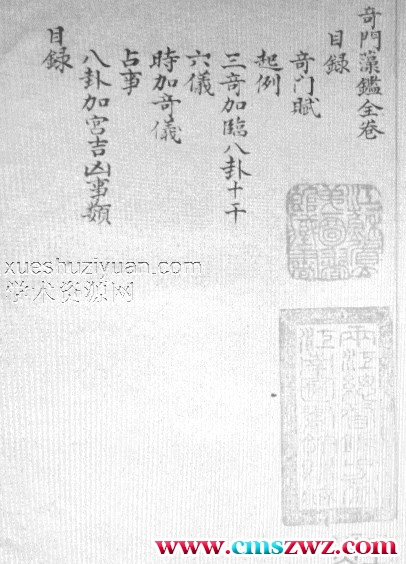 奇門藻鑑全卷
目録
奇门賦
起例
三奇加臨八卦十干
六儀
時加奇儀
占事
八卦加宮吉凶事類
目録
xueshuziyuan.com
学术资源网
www.cmszwz.com